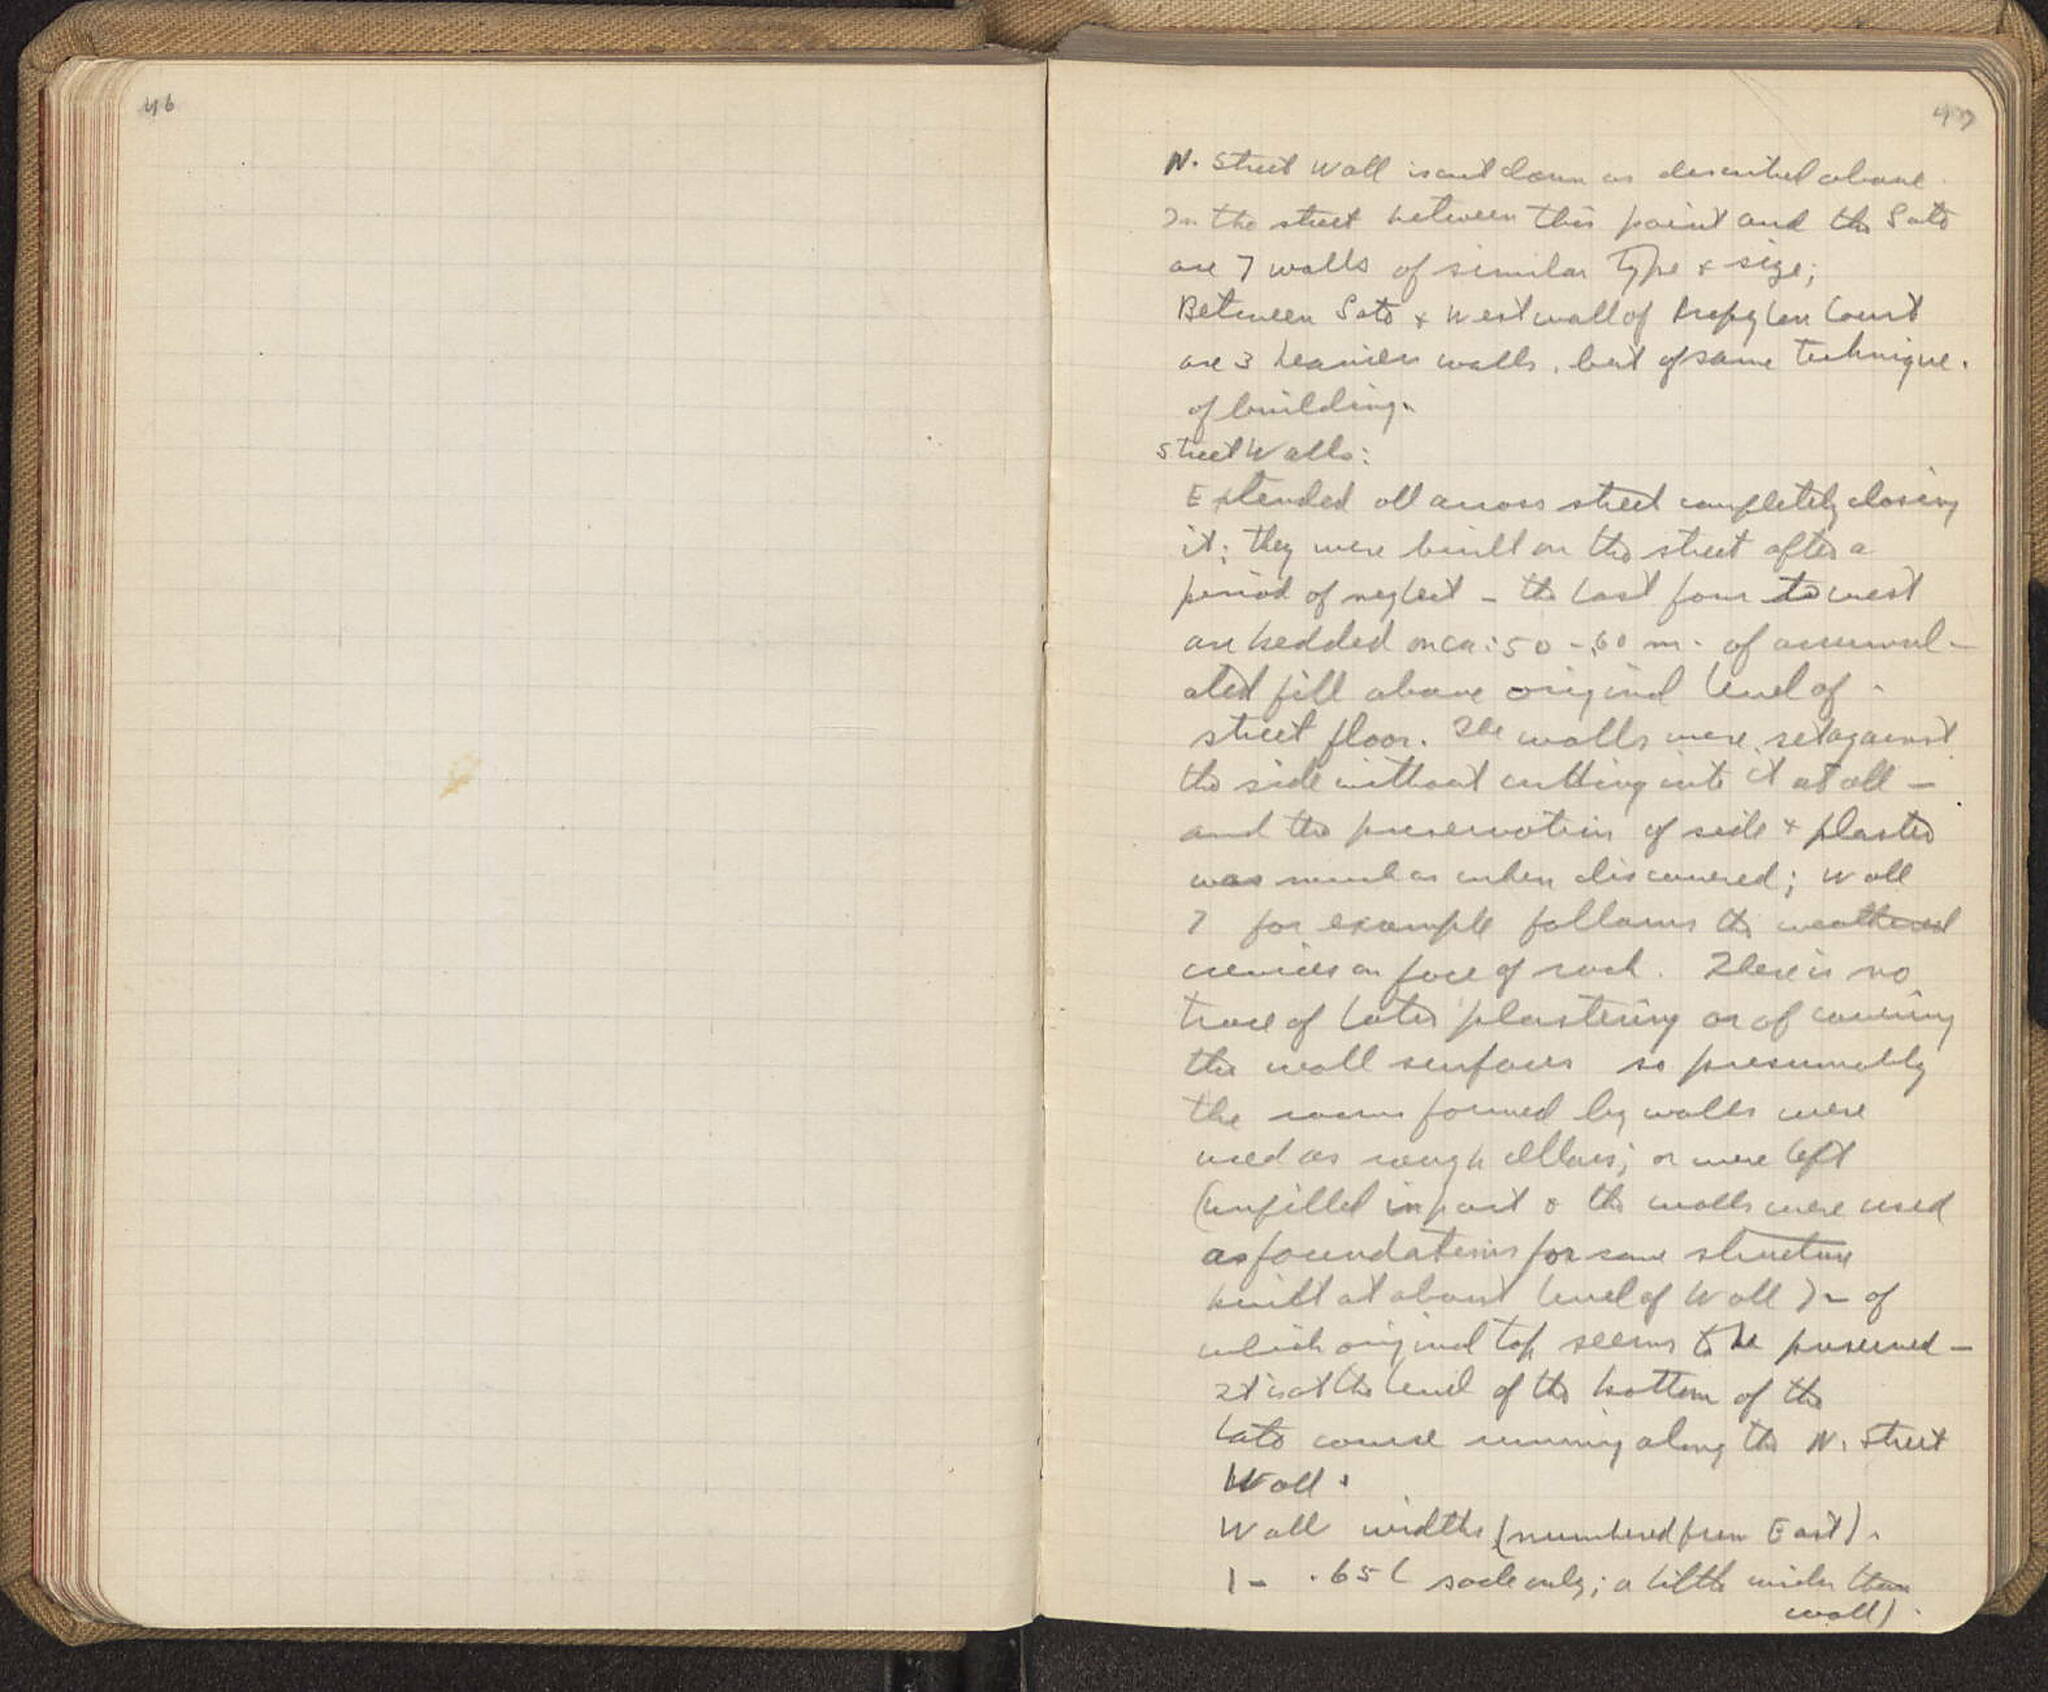 46
47
N. Street Wall is cut down as described above.
In the street between this point and the Gate
are 7 walls of similar type & size;
Between Gate & West wall of Propylon Court
are 3 heavier walls, but of same technique
of building.
Street Walls:
Extended all across street completely closing
it; they were built on the street after a
period of neglect – the last four to west
are bedded on ca .50 - .60 m. of accumul-
ated fill above original level of
street floor. The walls were set against
the side without cutting into it at all –
and the preservation of side & plaster
was much as when discovered; Wall
7 for example follows the weathered
crevices on face of rock. There is no
trace of later plastering or of covering
the wall surfaces so presumably
the rooms formed by walls were
used as rough cellars; or were left
(unfilled in part & the walls were used
as foundations for some structure
built at about level of Wall 7 – of
which original top seems to be preserved –
It is at the level of the bottom of the
late course running along the N. Street
Wall.
Wall widths (numbered from East).
1 – .65 ( socle only; a little wider than
wall).